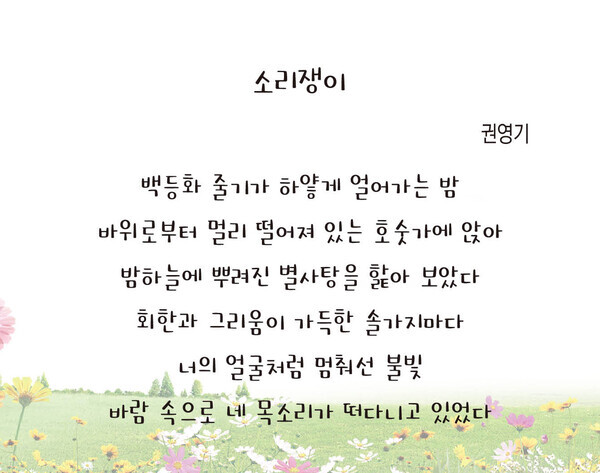 소리쟁이
권영기
백등화 줄기가 하얗게 얼어가는 밤
바위로부터 멀리 떨어져 있는 호숫가에 앉아
밤하늘에 뿌려진 별사탕을 핥아 보았다
회한과 그리움이 가득한 솔가지마다
너의 얼굴처럼 멈춰선 불빛
바람 속으로 네 목소리가 떠다니고 있었다